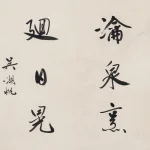 瀹泉烹
廻日晃
吴湖帆